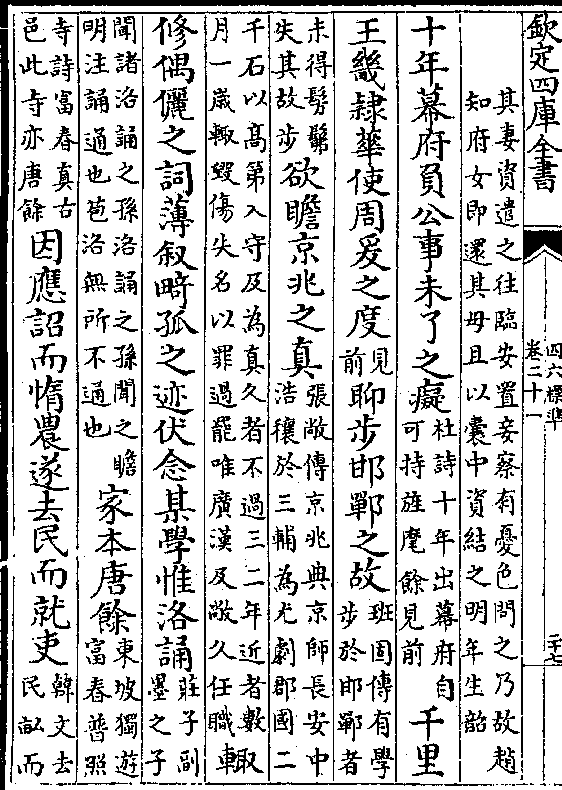 欽定四庫全書
四六標準
卷二十一
二十七
其妻資遣之往臨安置妾察有憂色問之乃故趙
知府女即還其母且以囊中資結之明年生韶
十年幕府員公事未了之癡
杜詩十年出幕府自
可持旌麾餘見前
千里
王畿隷華使周爰之度
見
前
聊步邯鄲之故
班固傳有學
步於邯鄲者
未得髣髴
失其故步
欲瞻京兆之真
張敞傳京兆典京師長安中
浩穰於三輔為尤劇郡國二
千石以高第入守及為真久者不過三二年近者數
月一嵗輒毀傷失名以罪過罷唯廣漢及敞久任職
輙
修偶儷之詞薄叙畸孤之迹伏念某學惟洛誦
莊子副
墨之子
聞諸洛誦之孫洛誦之孫聞之瞻
明注誦通也苞洛無所不通也
家本唐餘
東坡獨遊
富春普照
寺詩富春真古
邑此寺亦唐餘
因應詔而惰農遂去民而就吏
韓文去
民畝而